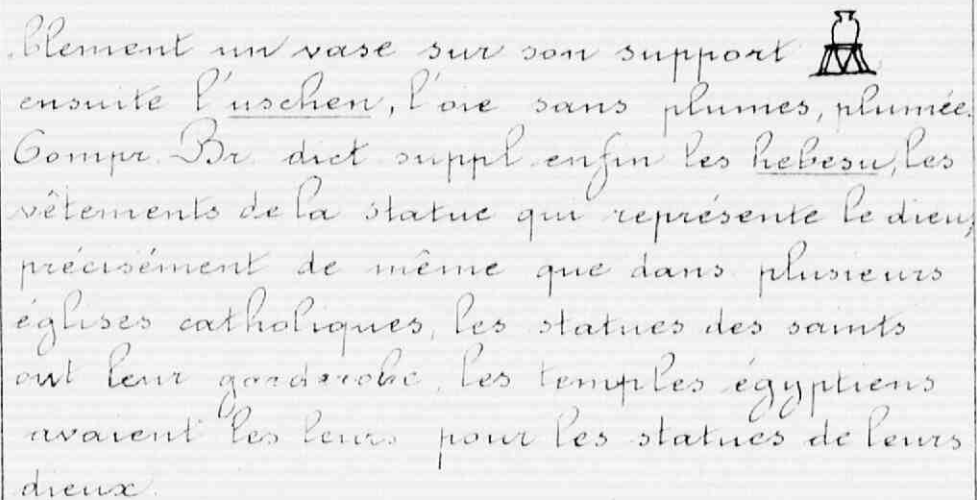 blement un vase sur son support
ensuite l'uschen, l'oie sans plumes, plumée.
Compr. Br. dict suppl. enfin les hebesu, les
vêtements de la statue qui représente le dieu,
précisément de même que dans plusieurs
églises catholiques, les statues des saints
ont leur garderobe, les temples égyptiens
avaient les leurs pour les statues de leurs
dieux.